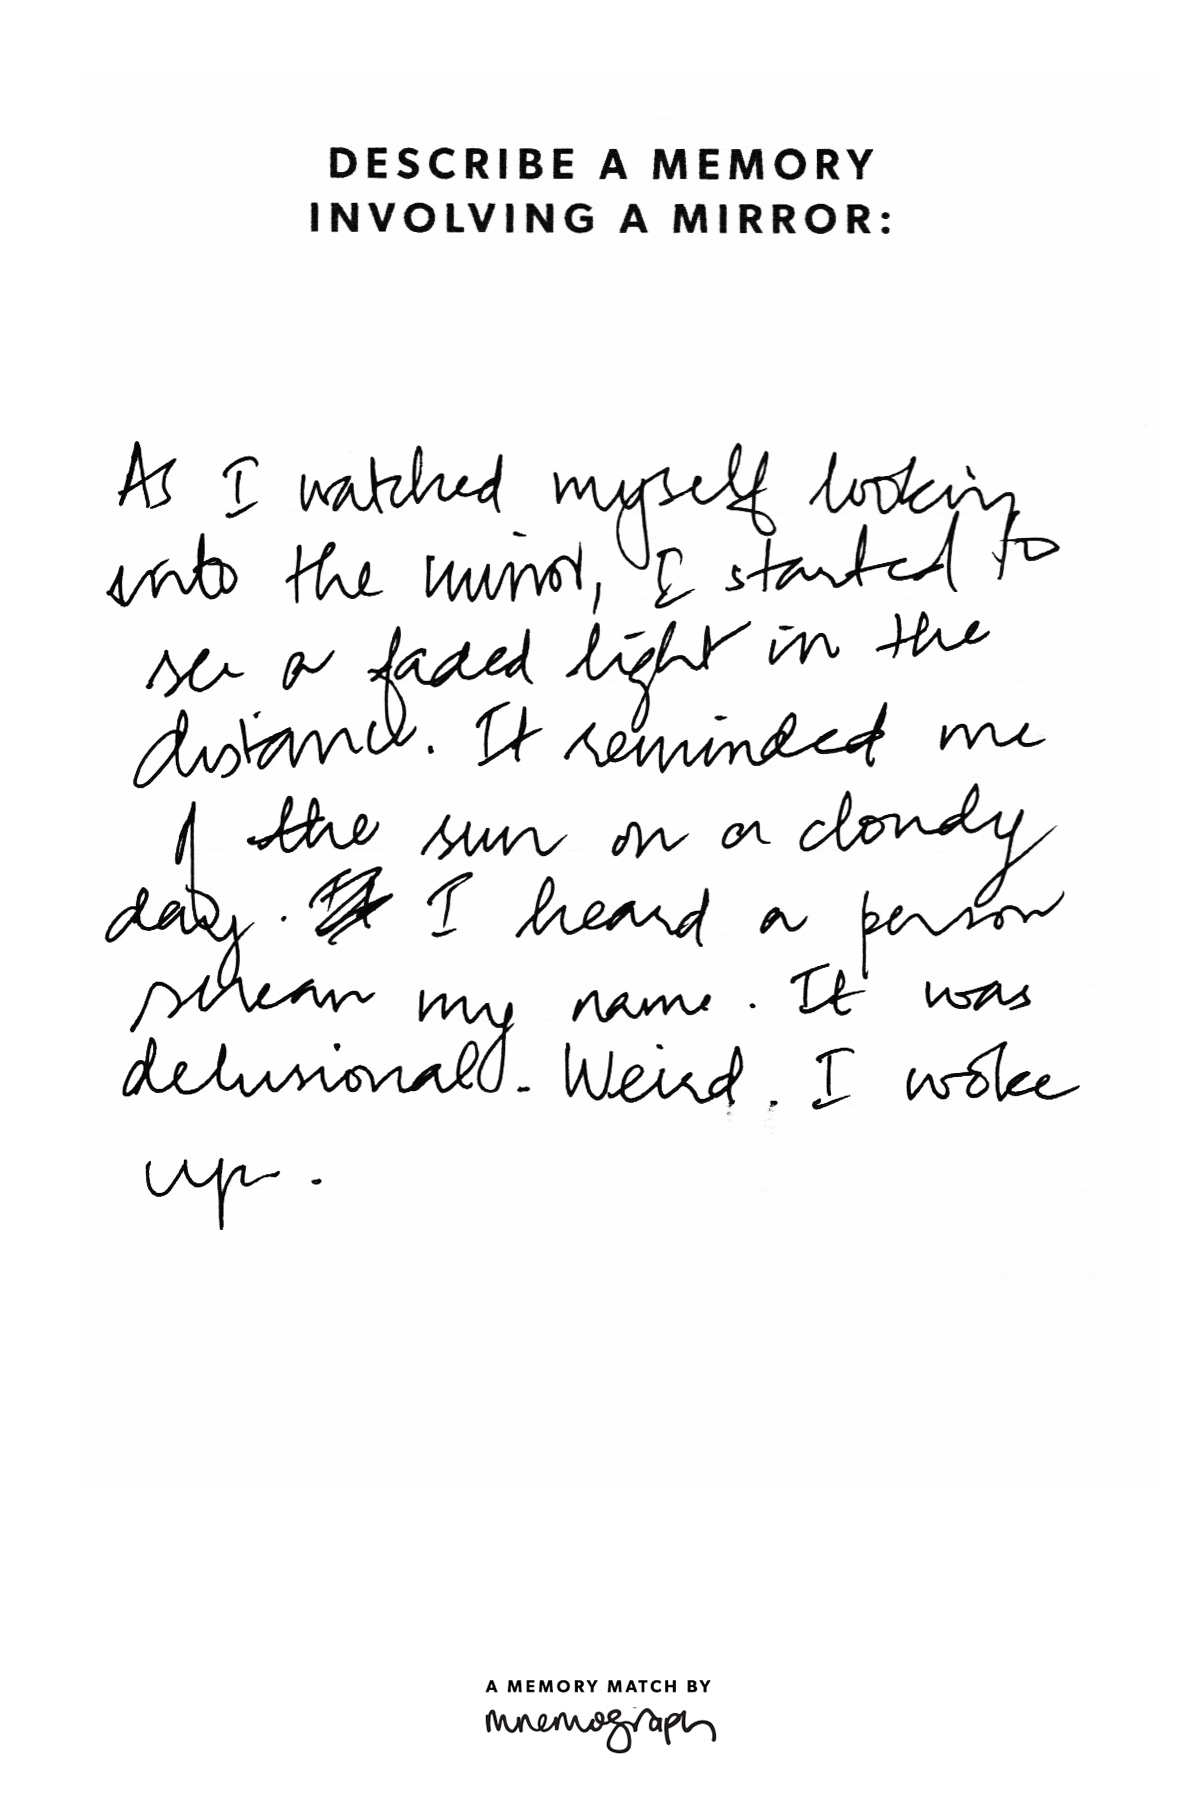 DESCRIBE A MEMORY
INVOLVING A MIRROR:
As I watched myself looking
into the mirror, I started to
see a faded light in the
distance. It reminded me
of the sun on a cloudy
day. I heard a person
scream my name. It was
delusional. Weird. I woke
up.
A MEMORY MATCH BY
mnemograph